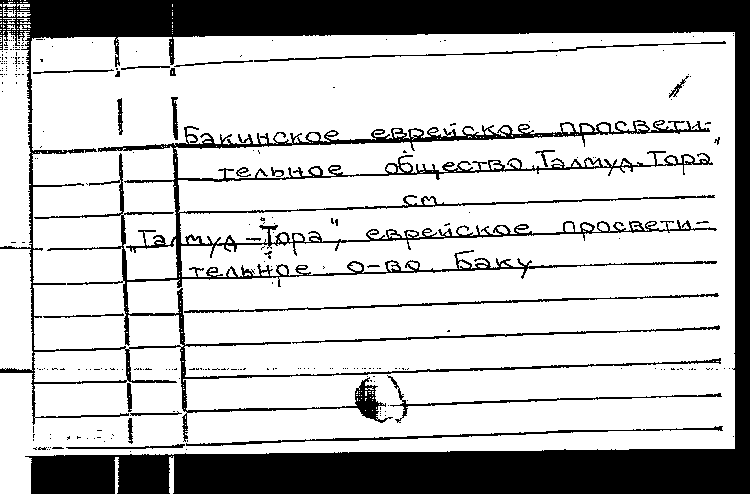 Бакинское еврейское просвети-
тельное общество „Талмуд-Тора"
см.
„Талмуд-Тора", еврейское просвети-
тельное о-во. Баку